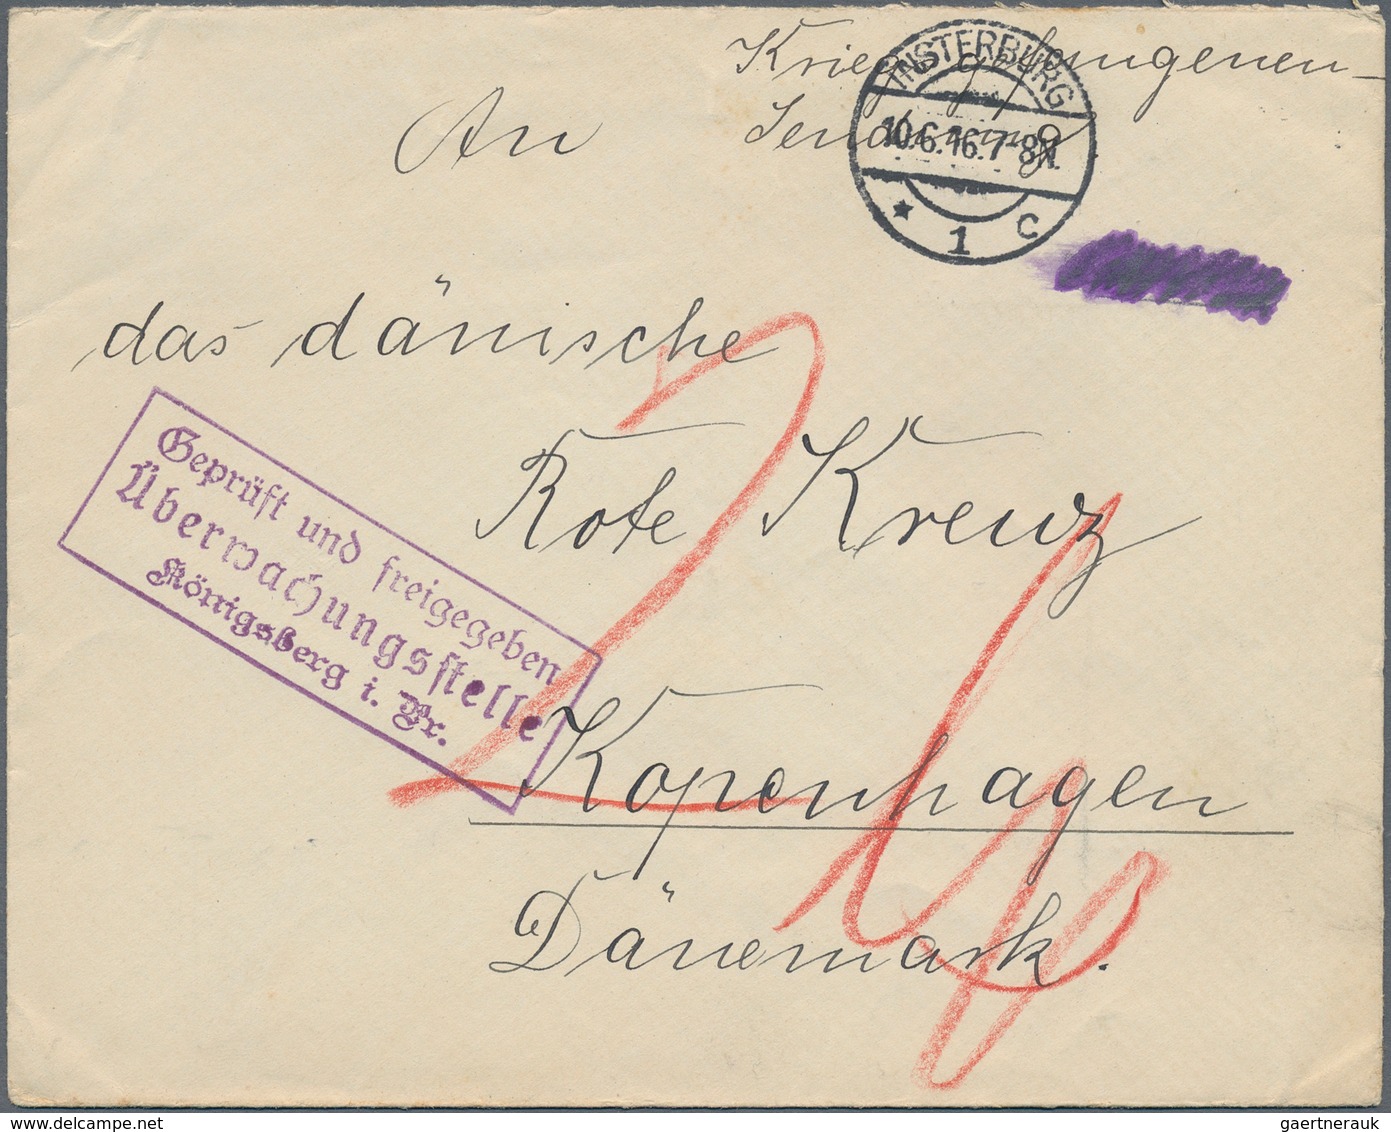 Kriegsgefangenen-
Sendung
INSTERBURG
10.6.16.7-8N.
* 1 c
An
das dänische
Rote Kreuz
Kopenhagen
Dänemark.
Geprüft und freigegeben
Überwachungsstelle
Königsberg i. Pr.
delcampe.net
gaertnerauk